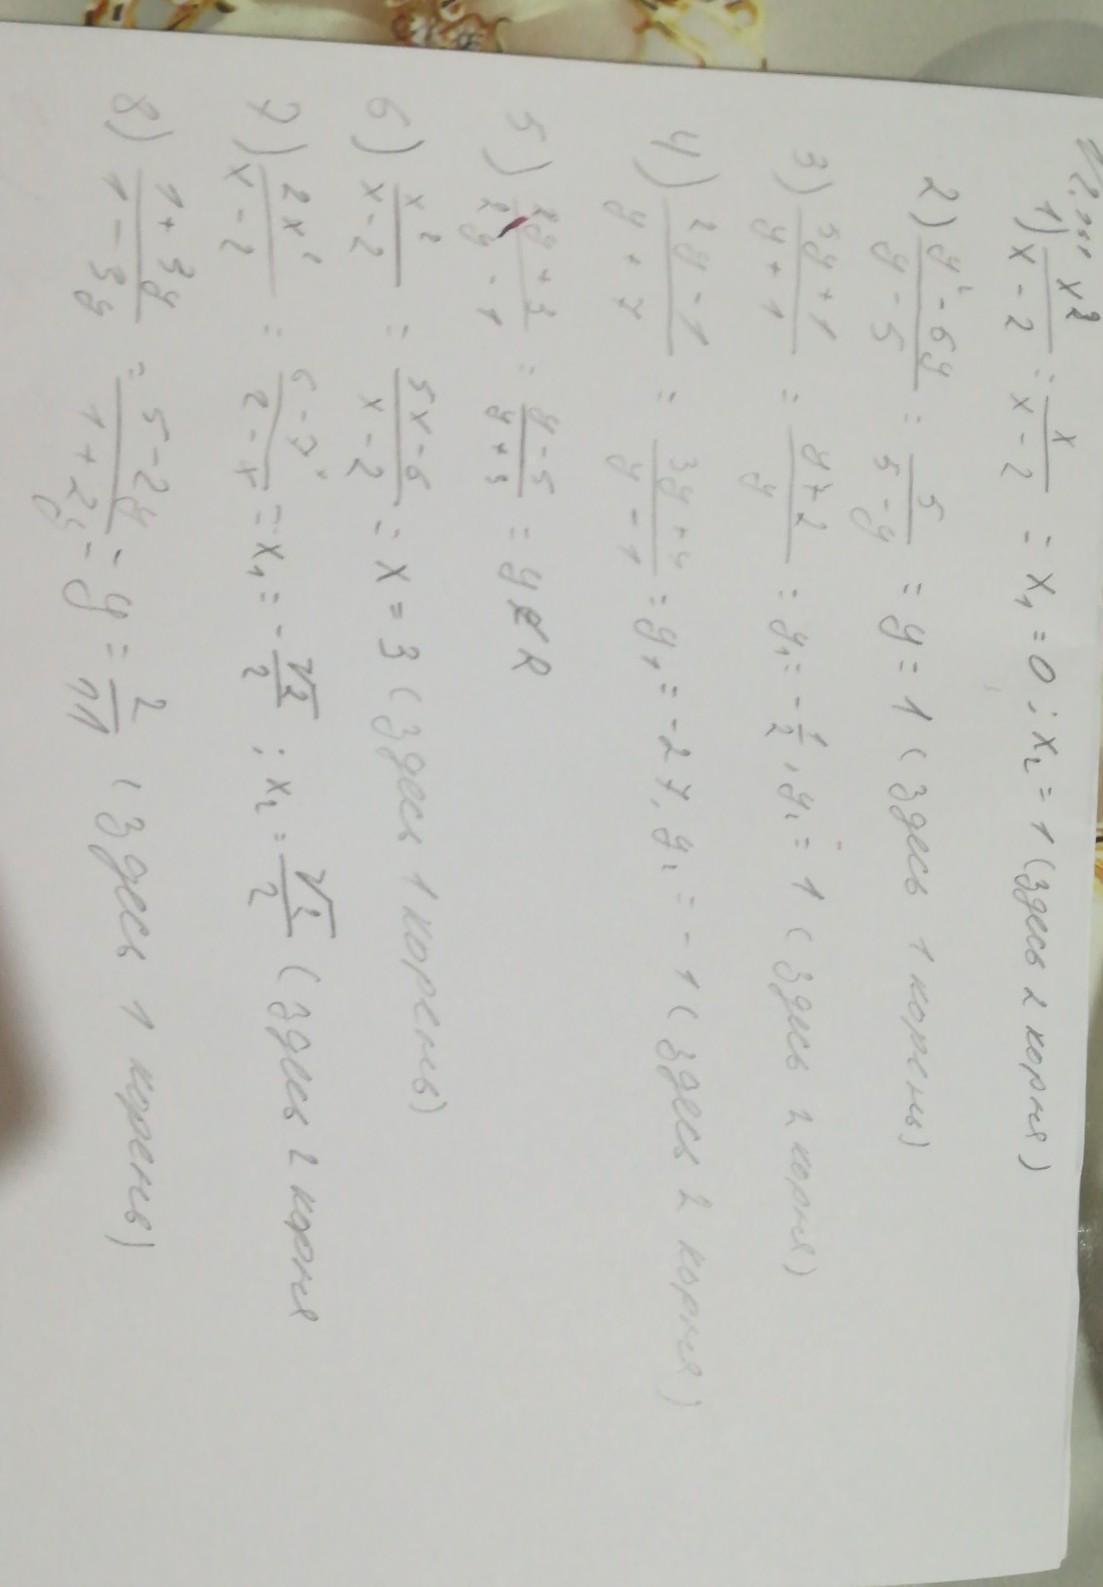 1) x²/(x - 2) = x/(x - 2) = x₁ = 0; x₂ = 1 (здесь 2 корня)
2) (y² - 6y)/(y - 5) = 5/(5 - y) = y = 1 (здесь 1 корень)
3) (3y + 1)/(y + 1) = (y + 2)/y = y₁ = -1/2, y₂ = 1 (здесь 2 корня)
4) (2y - 1)/(y + 7) = (3y + 4)/(y - 1) = y₁ = -27, y₂ = -1 (здесь 2 корня)
5) (2y + 3)/(2y - 1) = (y - 5)/(y + 3) = y ∉ R
6) x²/(x - 2) = (5x - 6)/(x - 2) = x = 3 (здесь 1 корень)
7) 2x²/(x - 2) = /(2 - x) = x₁ = - ; x₂ = (здесь 2 корня
8) (1 + 3y)/(1 - 3y) = (5 - 2y)/(1 + 2y) = y = 2/11 (здесь 1 корень)